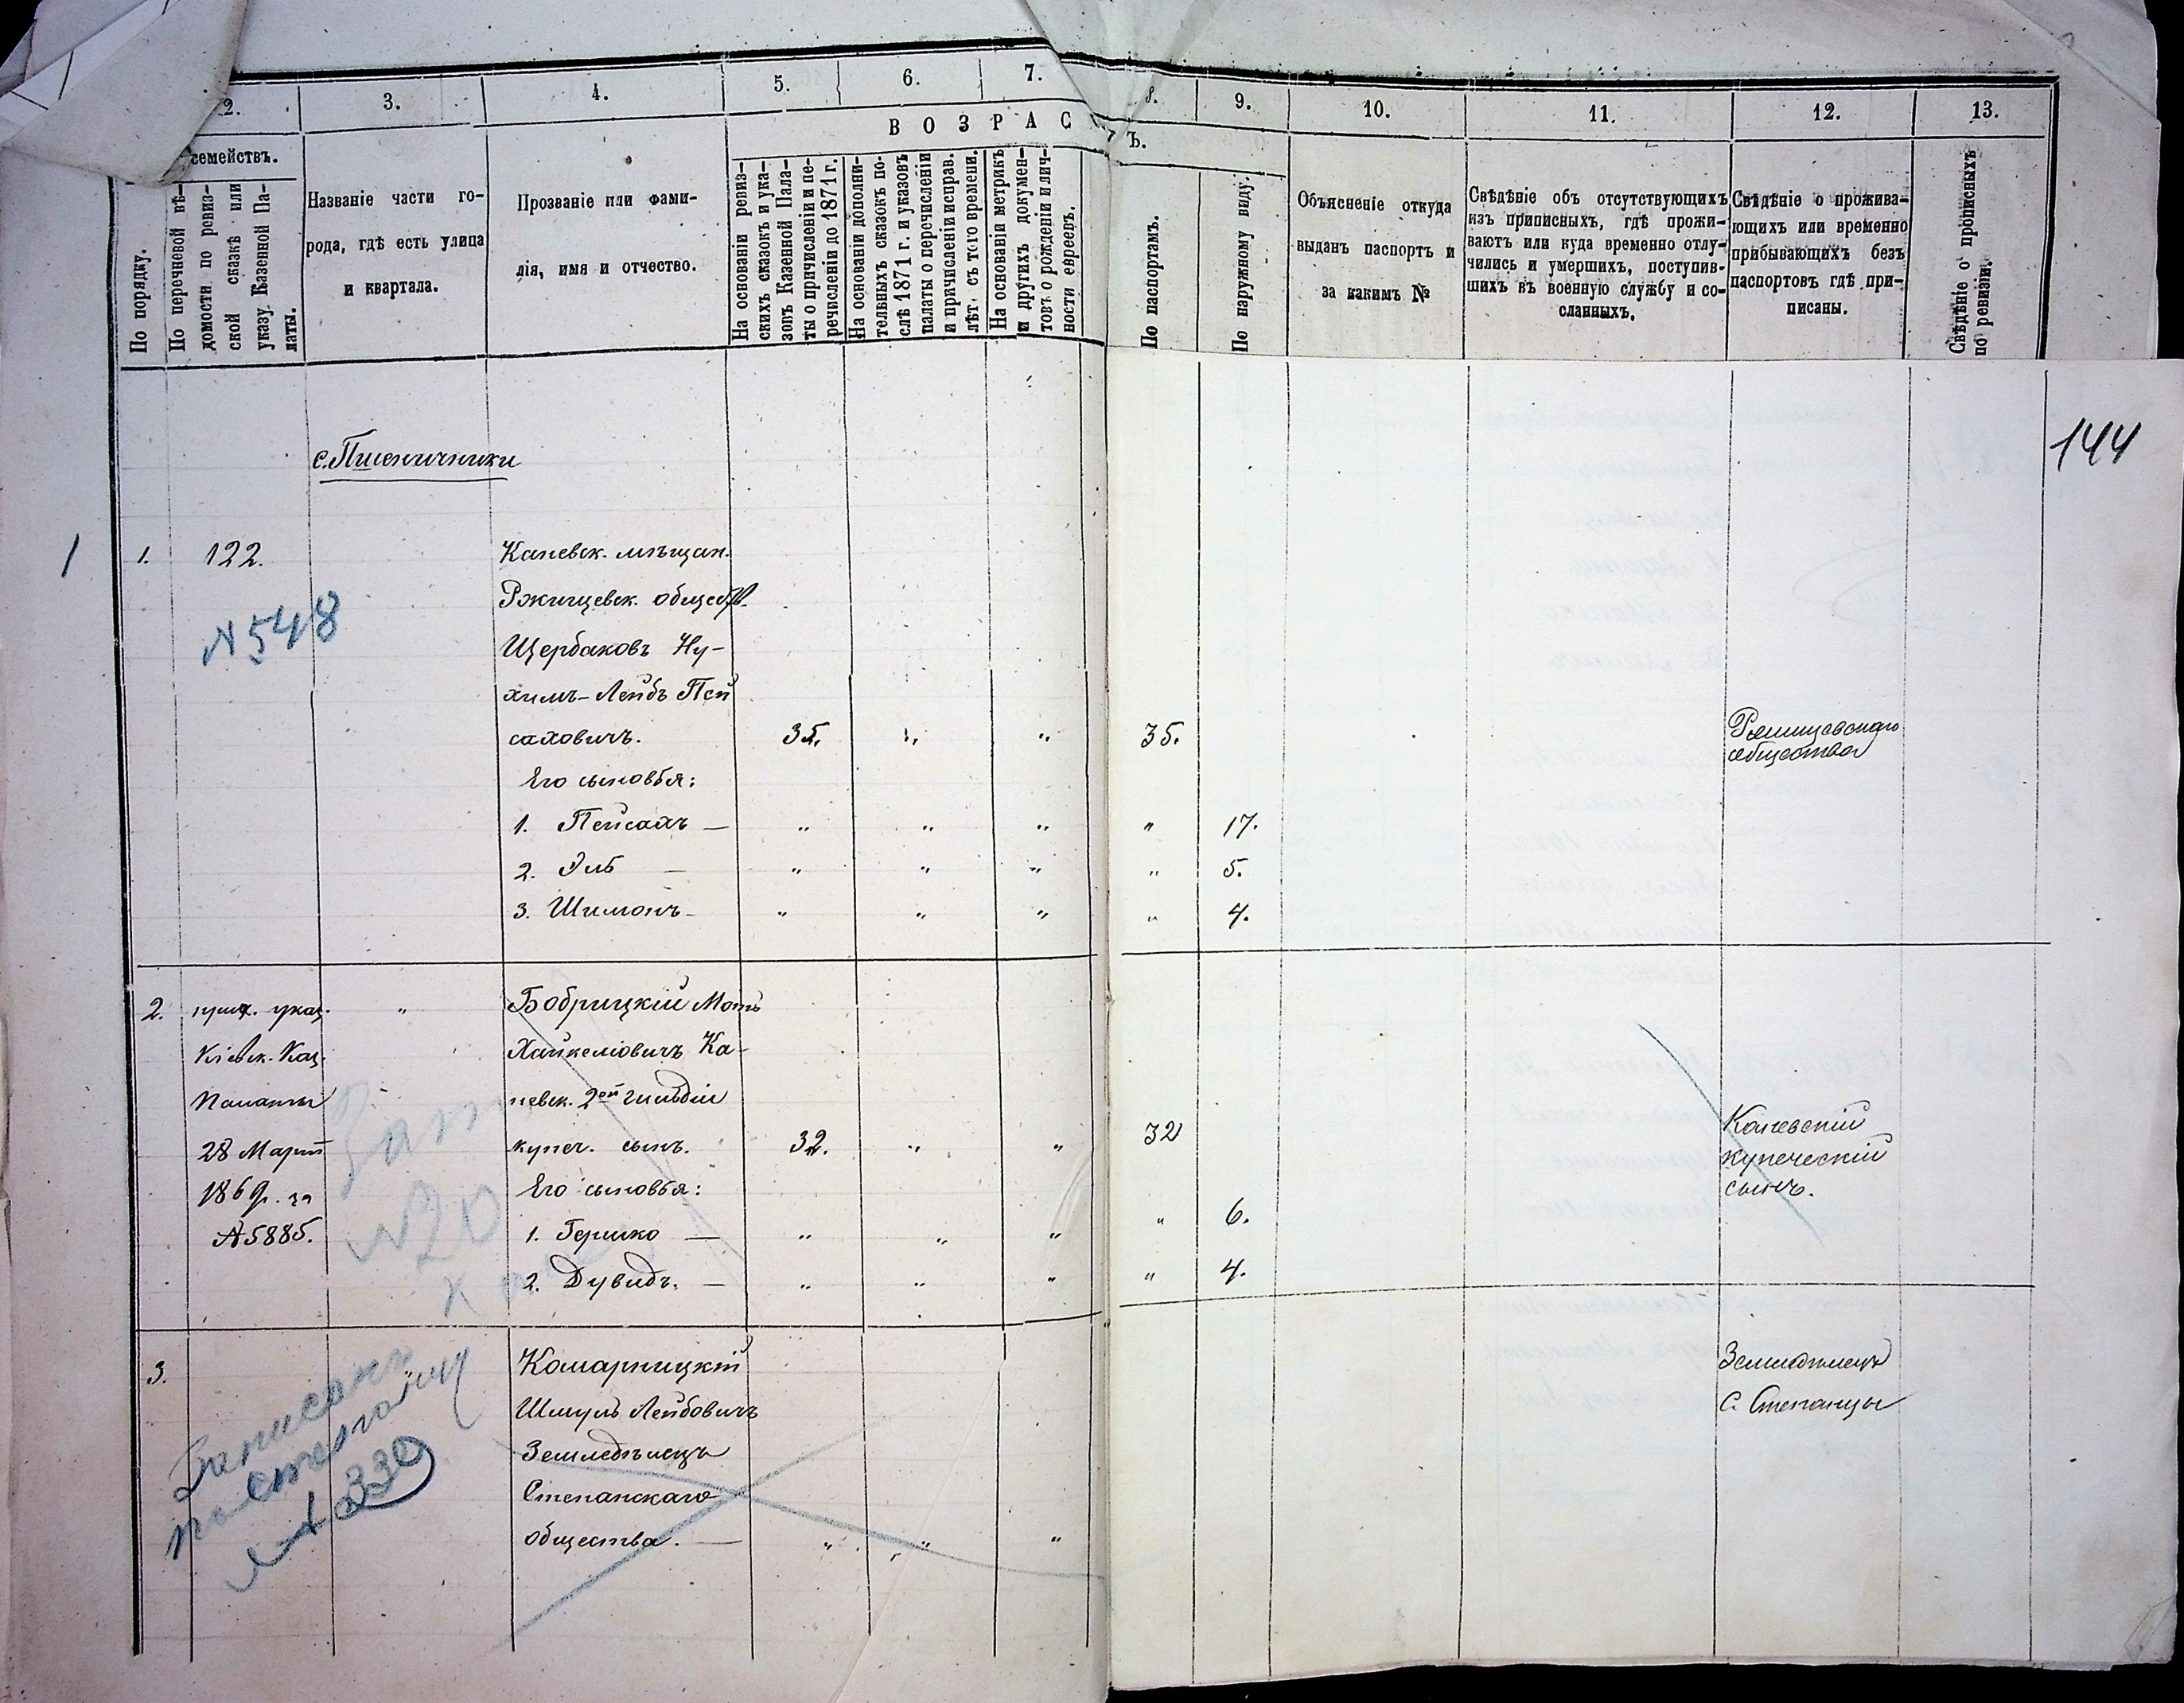 2.
3.
4.
5.
6.
7.
8.
9.
10.
11.
12.
13.
семействъ.
ВОЗРАС
Ъ.
По порядку.
По перечневой вѣ-
домости по ревиз-
ской сказкѣ или
указу Казенной Па-
латы.
Названіе части го-
рода, гдѣ есть улица
и квартала.
Прозваніе или фами-
лія, имя и отчество.
На основаніи ревиз-
скихъ сказокъ и ука-
зовъ Казенной Пала-
ты о причисленіи и пе-
речисленіи до 1871 г.
На основаніи дополни-
тельныхъ сказокъ по-
слѣ 1871 г. и указовъ
палаты о перечисленіи
и причисленіи исправ.
лѣт. съ того времени.
На основаніи метрикъ
и другихъ докумен-
товъ о рожденіи и лич-
ности евреевъ.
По паспортамъ.
По наружному виду.
Объясненіе откуда
выданъ паспортъ и
за какимъ №
Свѣдѣніе объ отсутствующихъ
изъ приписныхъ, гдѣ прожи-
ваютъ или куда временно отлу-
чились и умершихъ, поступив-
шихъ въ военную службу и со-
сланныхъ.
Свѣдѣніе о прожива-
ющихъ или временно
прибывающихъ безъ
паспортовъ гдѣ при-
писаны.
Свѣдѣніе о прописныхъ
по ревизіи.
144
с. Пшеничники
1
1. 122. Каневск. мѣщан.
Ржищевск. обществ.
№ 548
Щербаковъ Ну-
химъ-Лейбъ Пей
саховичъ. 35. " " 35. Ржищевскаго
общества
Его сыновья:
1. Пейсахъ — " " " " 17.
2. Эль — " " " " 5.
3. Шимонъ - " " " " 4.
2. прич. указ. " Бобрицкій Моть
Кіевск. Каз. Хайкеліовичъ Ка-
Палаты невск. 2ой гильдіи
28 Марта купеч. сынъ. 32. " " 32 Каневскій
купеческій
сынъ.
1869 г. за Его сыновья:
№ 5885. 1. Гершко — " " " " 6.
2. Дувидъ. — " " " " 4.
№ 20
3. " Комарницкій Земледѣлецъ
Шмуль Лейбовичъ С. Степанцы
Земледѣлецъ
Степанскаго
общества. — " " "
Записанъ
№ 330